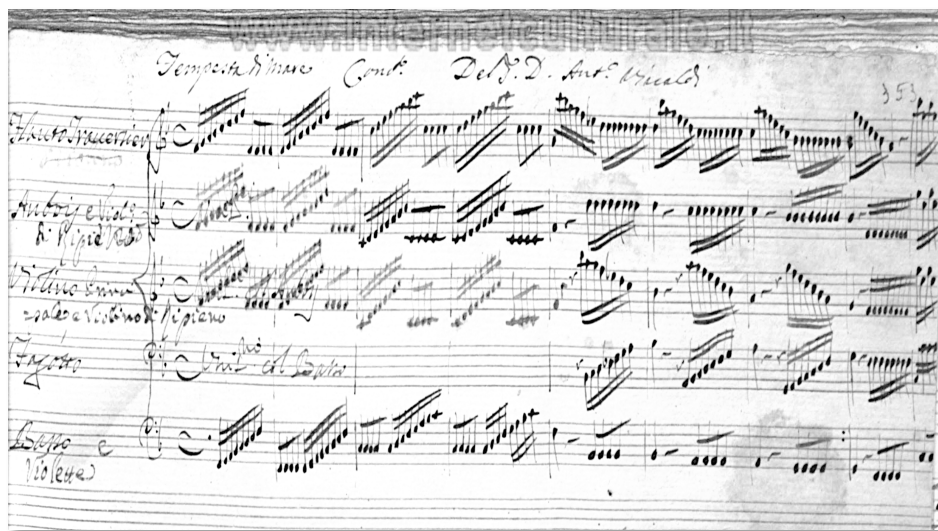 www.internetculturale.it
Tempesta di Mare Cond.º Del S. D. Ant.º Vivaldi
353
Flauto Trauersier
Auboij e Viol:º
di Ripieno
Violino Primo
sole e Violino di Ripieno
Fagotto
Uni.no col Basso
Basso e
Violette